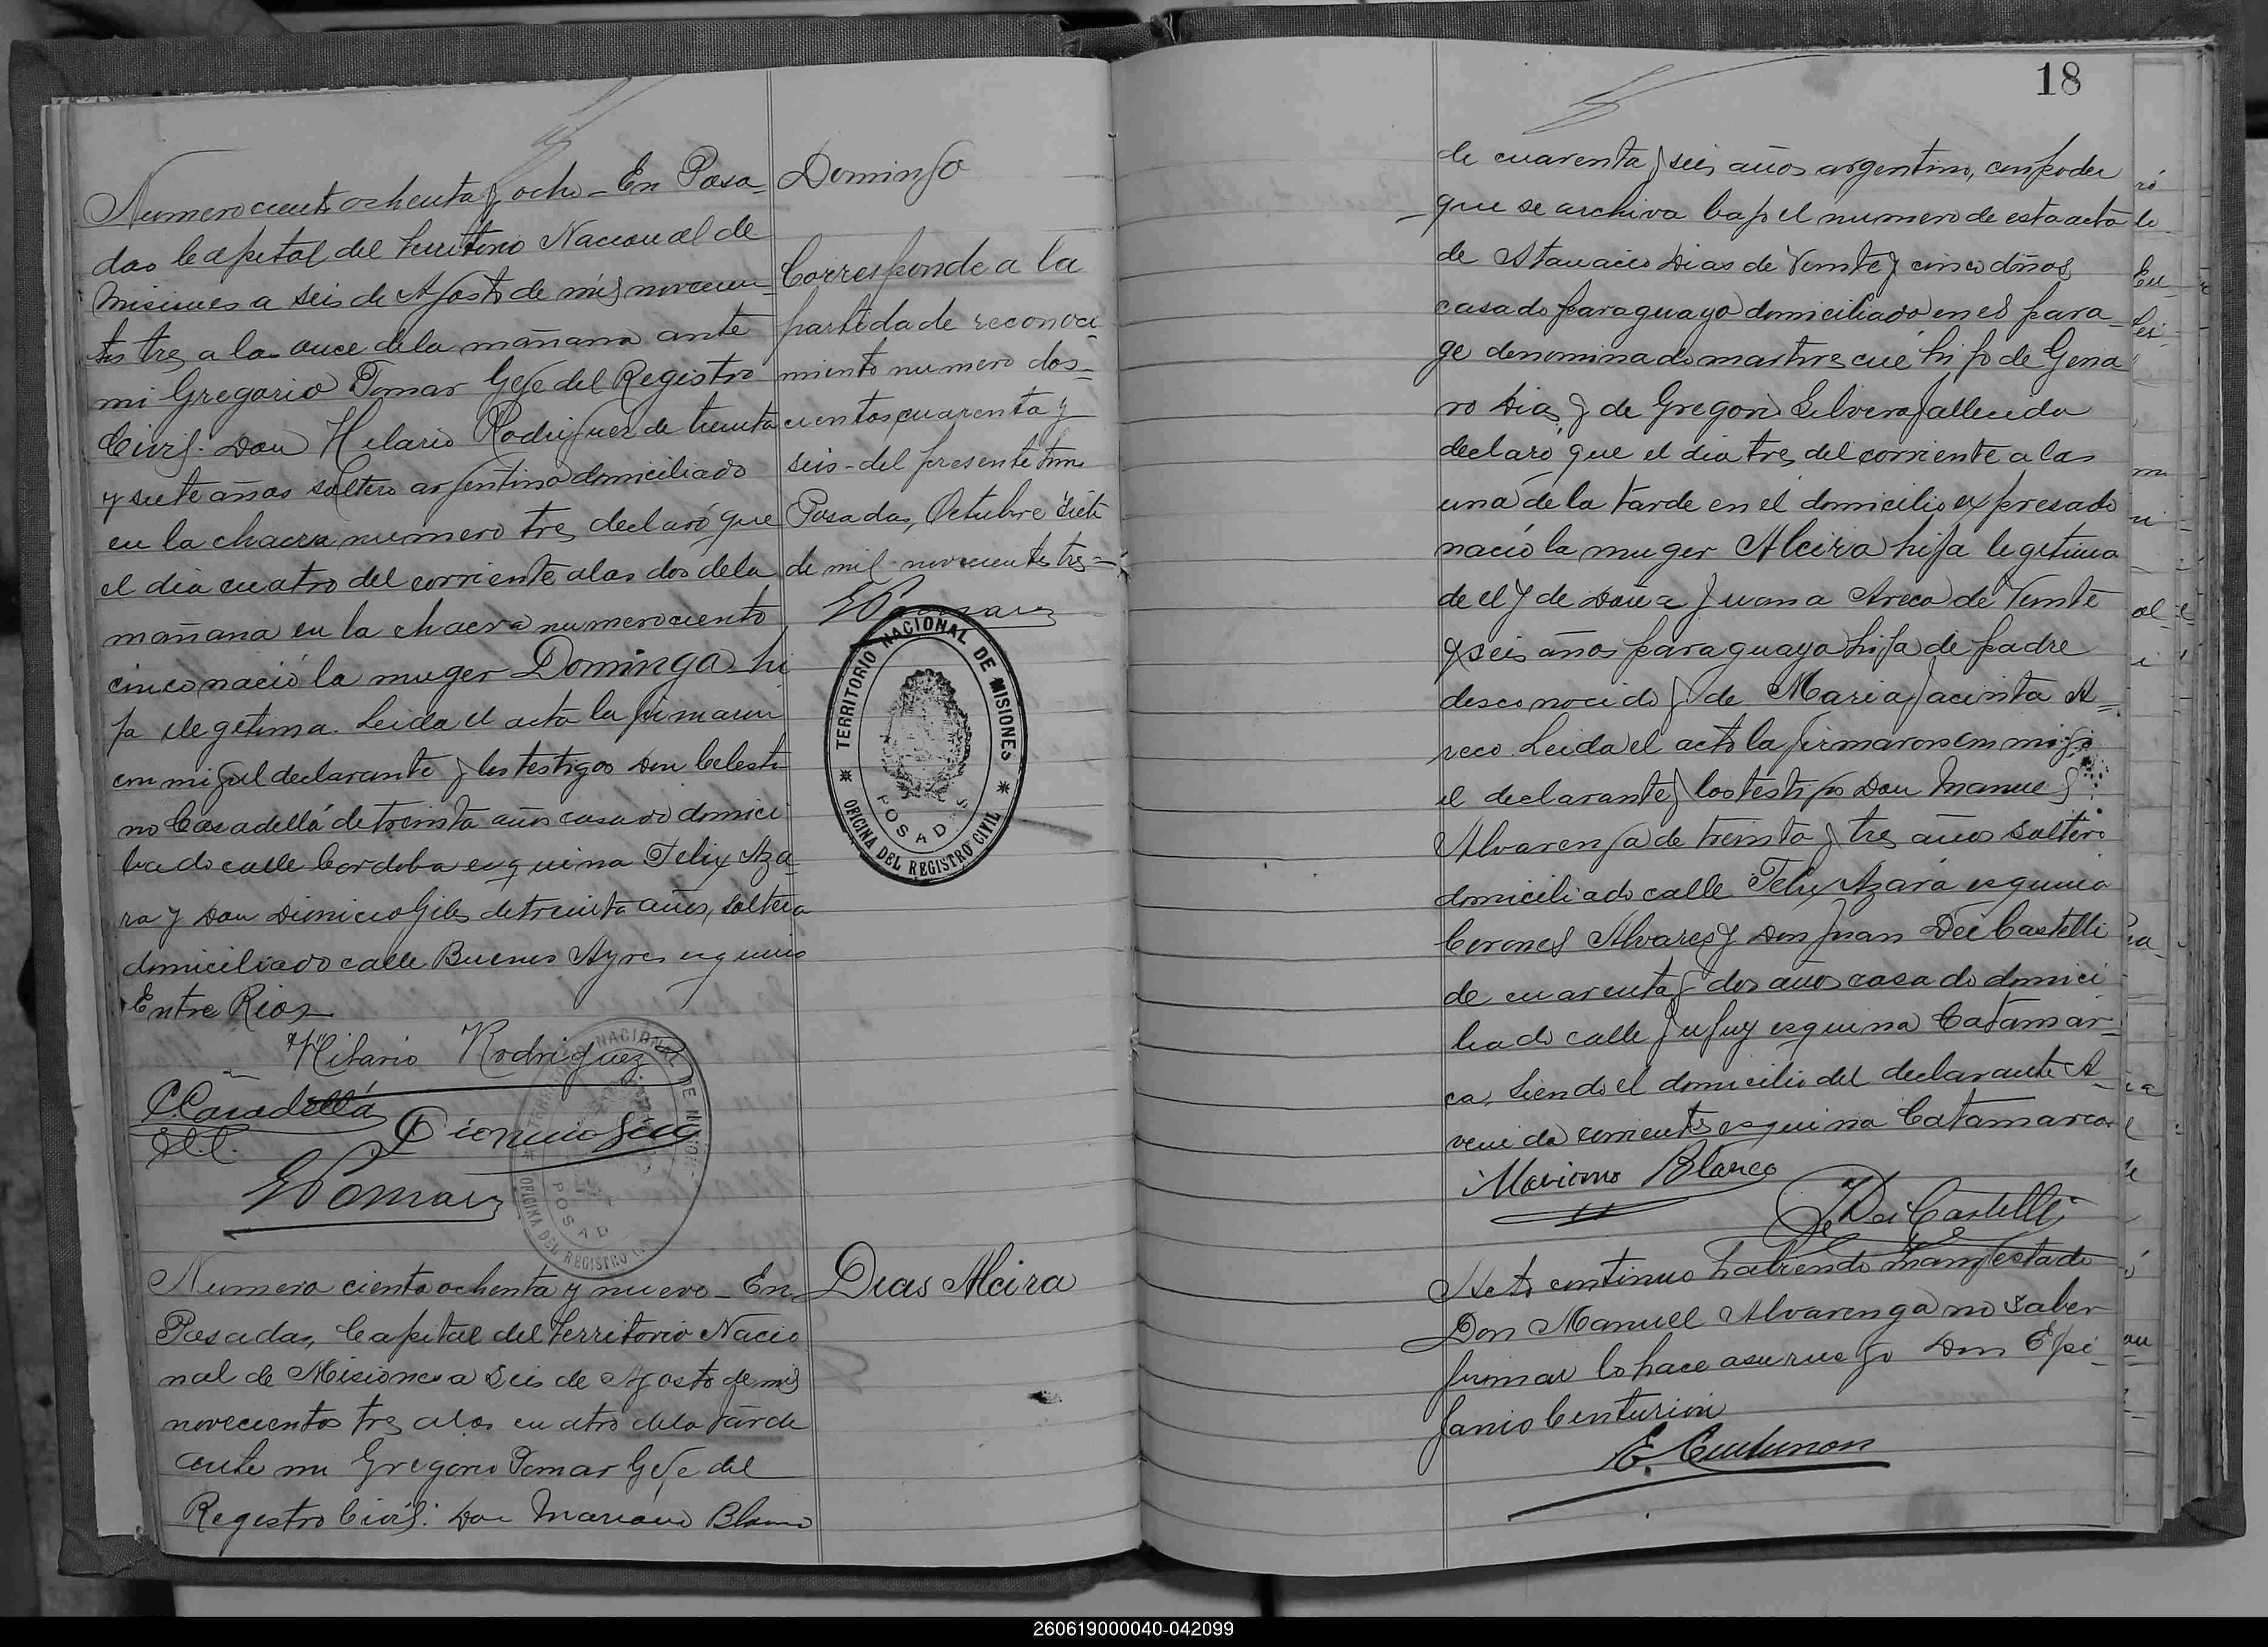 Numero ciento ochenta y ocho - En Posa-
das Capital del Territorio Nacional de
Misiones a seis de Agosto de mil novecien-
tos tres a las once dela mañana ante
mi Gregorio Pomar Gefe del Registro
Civil: Don Hilario Rodriguez de treinta
y siete años soltero argentino domiciliado
en la chacra numero tres declaró que
el dia cuatro del corriente alas dos dela
mañana en la chacra numero ciento
cinco nació la muger Dominga hi
ja ilegetima. Leida el acta la firmaron
con migo el declarante y los testigos Don Celesti
no Casadellá de treinta años casado domici
liado calle Cordoba esquina Felix Aza-
ra y Don Dionicio Giles de treinta años, soltero
domiciliado calle Buenos Ayres esquina
Entre Rios
Hilario Rodriguez
C. Casadellá
Dionicio
G Pomar
TERRITORIO NACIONAL DE MISIONES
POSAD
OFICINA DEL REGISTRO
Numero ciento ochenta y nueve - En
Posadas, Capital del Territorio Nacio
nal de Misiones a Seis de Agosto de mil
novecientos tres alas cuatro dela tarde
ante mi Gregorio Pomar Gefe del
Registro Civil: Don Mariano Blanco
Domingo
Corresponde a la
partida de reconoci
miento numero dos-
cientos cuarenta y
seis - del presente tomo
Posadas, Octubre siete
de mil novecientos tres =
G Pomar
TERRITORIO NACIONAL DE MISIONES
POSADAS
OFICINA DEL REGISTRO CIVIL
Dias Alcira
18
de cuarenta y seis años argentino, con poder
que se archiva bajo el numero de esta acta
de Stanacio Dias de Veinte y cinco años
casado paraguayo domiciliado en el para-
ge denominado martires cué hijo de Gena
ro Dias y de Gregoria Silvera fallecida
declaró que el dia tres del corriente a las
una de la tarde en el domicilio expresado
nació la muger Alcira hija legetima
de el y de Doña Juana Areco de Veinte
y seis años paraguaya hija de padre
desconocido y de Maria Jacinta A=
reco. Leida el acta la firmaron con migo
el declarante y los testigos Don Manuel
Alvarenga de treinta y tres años soltero
domiciliado calle Felix Azara esquina
Coronel Alvarez y Don Juan Dei Castelli
de cuarenta y dos años casado domici
liado calle Jujuy esquina Catamar-
ca, siendo el domicilio del declarante A-
venida corrientes esquina Catamarca
Mariano Blanco
J. Dei Castelli
Acto continuo habiendo manifestado
Don Manuel Alvarenga no saber
firmar lo hace asu ruego Don Epi-
fanio Centurion
E. Centurion
260619000040-042099